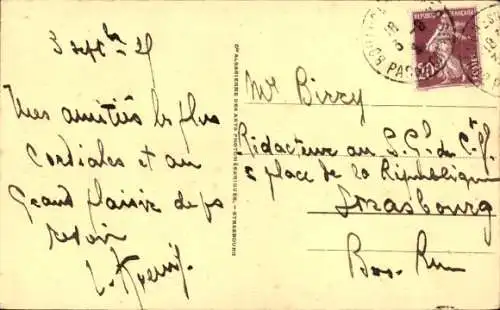 3 Sept bre 31
Mes amitiés les plus
Cordiales et au
Grand plaisir de vs
revoir
Cie ALSACIENNE DES ARTS PHOTOMÉCANIQUES, - STRASBOURG
REPUBLIQUE FRANÇAISE
50
Mr Birry
Rédacteur au S. Gl du Ct
place de la République
Strasbourg
Bas-Rhin